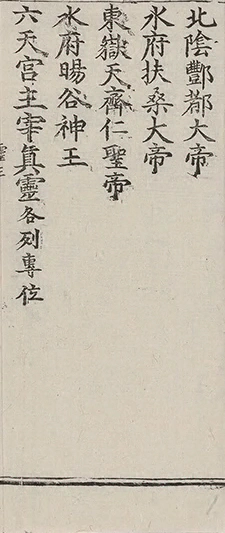 北陰酆都大帝
水府扶桑大帝
東嶽天齊仁聖帝
水府暘谷神王
六天宫主宰真靈各列專位